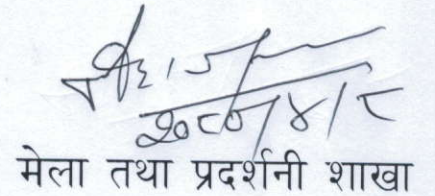 २०८०/४/८
मेला तथा प्रदर्शनी शाखा